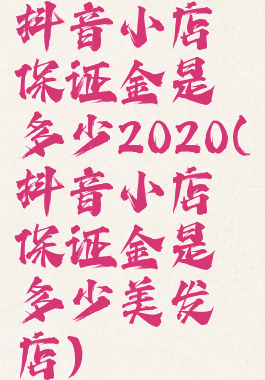 抖音小店
保证金是
多少2020(
抖音小店
保证金是
多少美发
店)